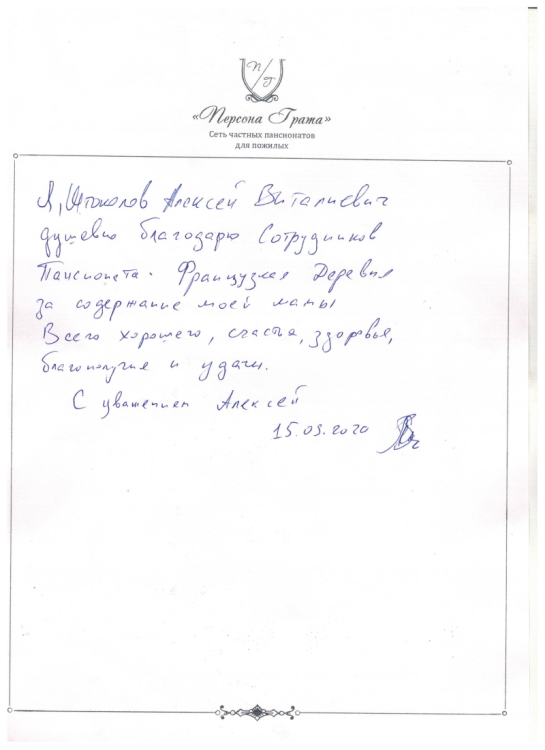 П/Г
«Персона Грата»
Сеть частных пансионатов
для пожилых
Я, Штоколов Алексей Виталиевич
душевно благодарю Сотрудников
Пансионата. Французкая Деревня
за содержание моей мамы
Всего хорошего, счастья, здоровья,
благополучия и удачи.
С уважением Алексей
15.03.2020